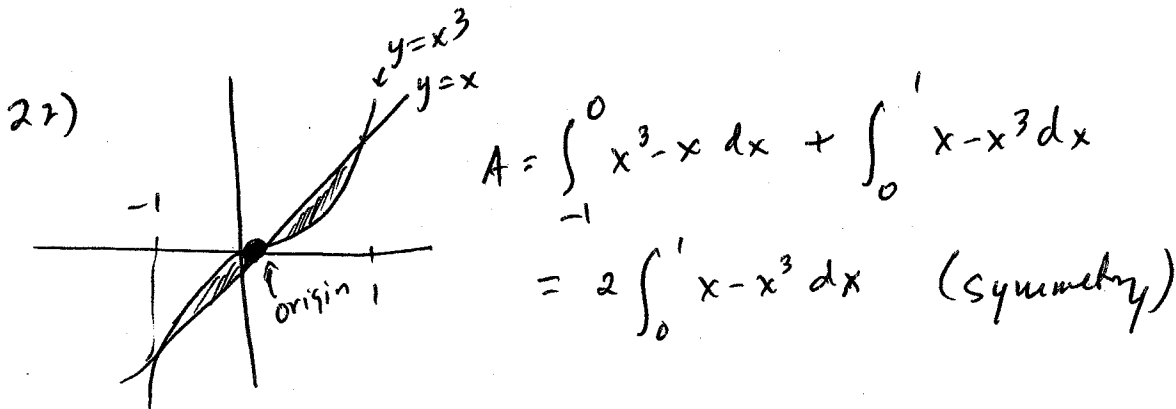 22)
y=x³
y=x
-1
origin
1
A = ∫₋₁⁰ x³-x dx + ∫₀¹ x-x³ dx
= 2 ∫₀¹ x-x³ dx (symmetry)